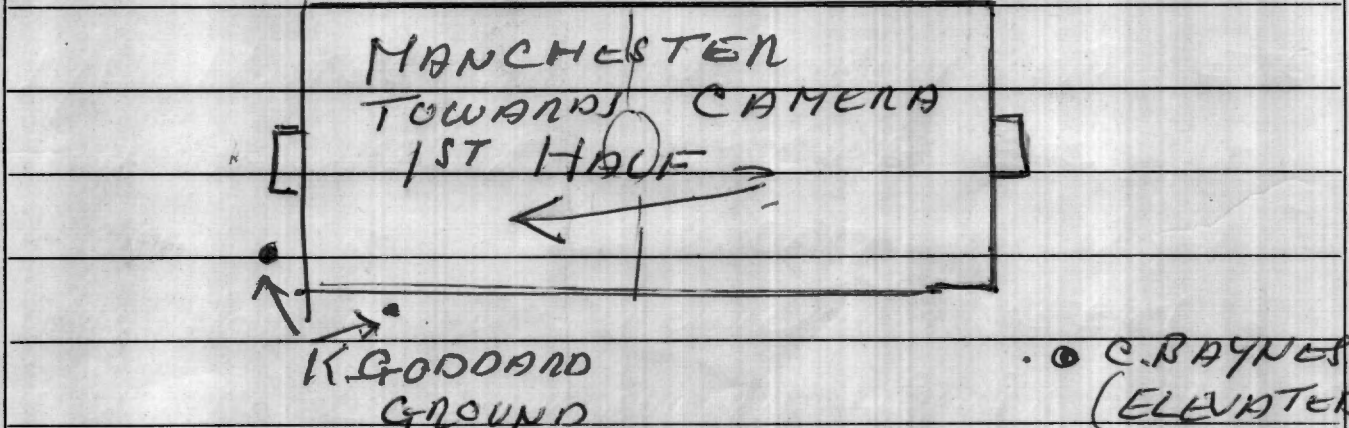 MANCHESTER
TOWARDS CAMERA
1ST HALF
K.GODDARD
GROUND
C.BAYNES
(ELEVATED